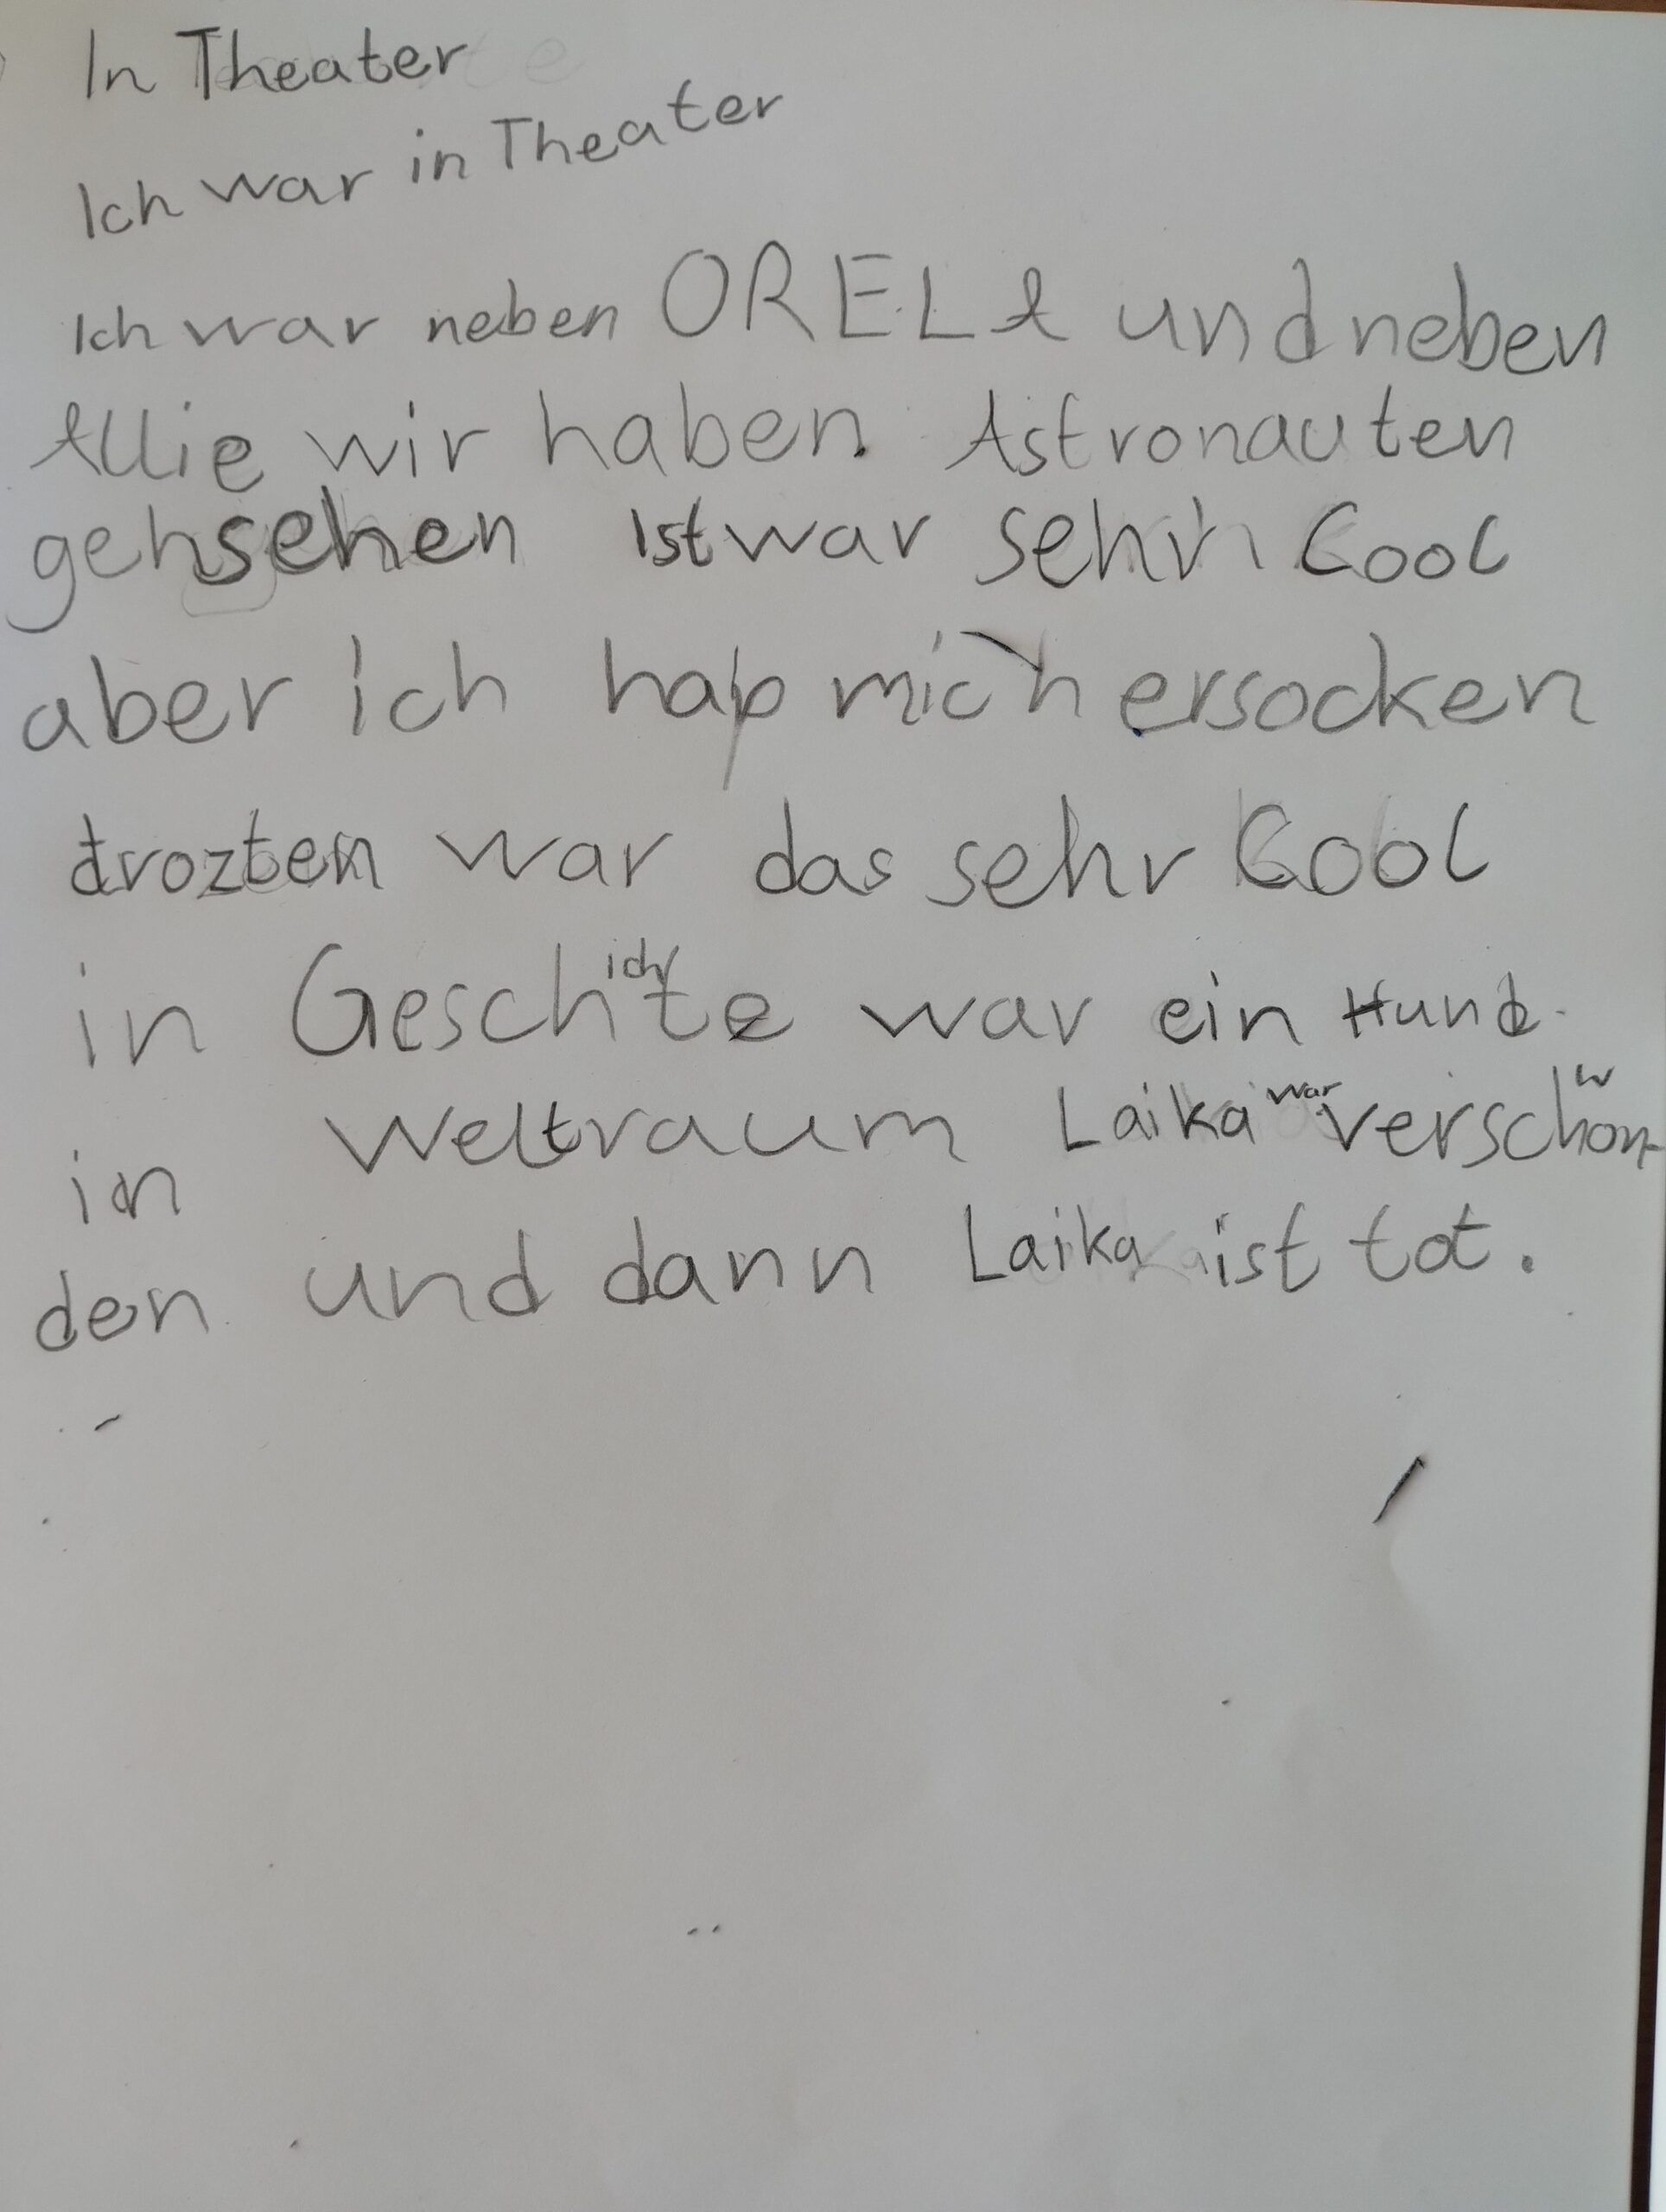 In Theater
Ich war in Theater
Ich war neben ORELA und neben
Allie wir haben Astronauten
gehsehen Ist war sehr Cool
aber ich hap mich ersocken
trozten war das sehr Cool
in Geschichte war ein Hund
in Weltraum Laika war verschwon
den und dann Laika ist tot.